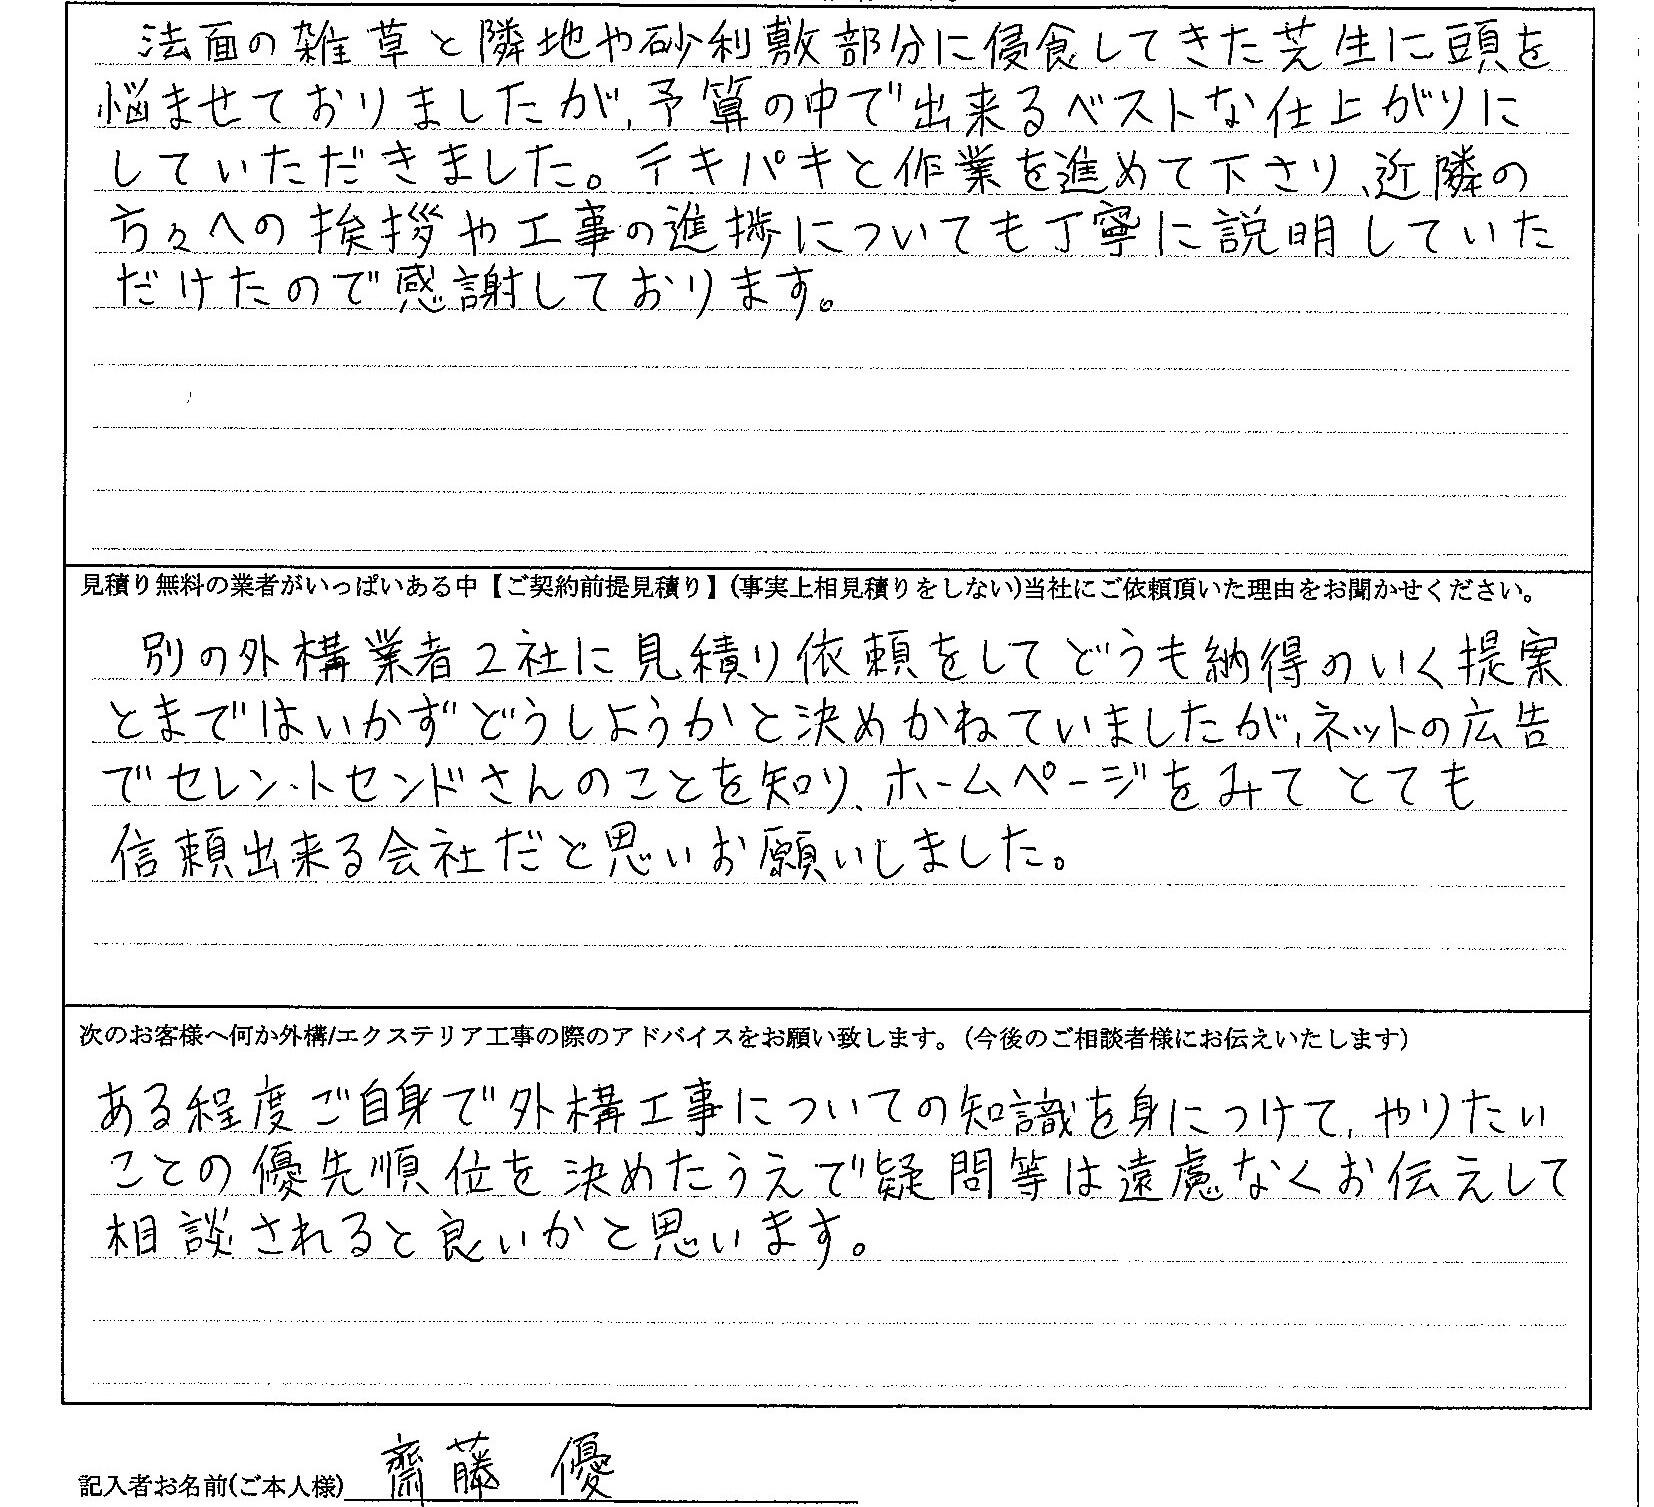 法面の雑草と隣地や砂利敷部分に侵食してきた芝生に頭を
悩ませておりましたが、予算の中で出来るベストな仕上がりに
していただきました。テキパキと作業を進めて下さり、近隣の
方々への挨拶や工事の進捗についても丁寧に説明していた
だけたので感謝しております。
見積り無料の業者がいっぱいある中【ご契約前提見積り】(事実上相見積りをしない)当社にご依頼頂いた理由をお聞かせください。
別の外構業者2社に見積り依頼をしてどうも納得のいく提案
とまではいかずどうしようかと決めかねていましたが、ネットの広告
でセレン・トセンドさんのことを知り、ホームページをみてとても
信頼出来る会社だと思いお願いしました。
次のお客様へ何か外構/エクステリア工事の際のアドバイスをお願い致します。(今後のご相談者様にお伝えいたします)
ある程度ご自身で外構工事についての知識を身につけて、やりたい
ことの優先順位を決めたうえで疑問等は遠慮なくお伝えして
相談されると良いかと思います。
記入者お名前(ご本人様) 齋藤 優